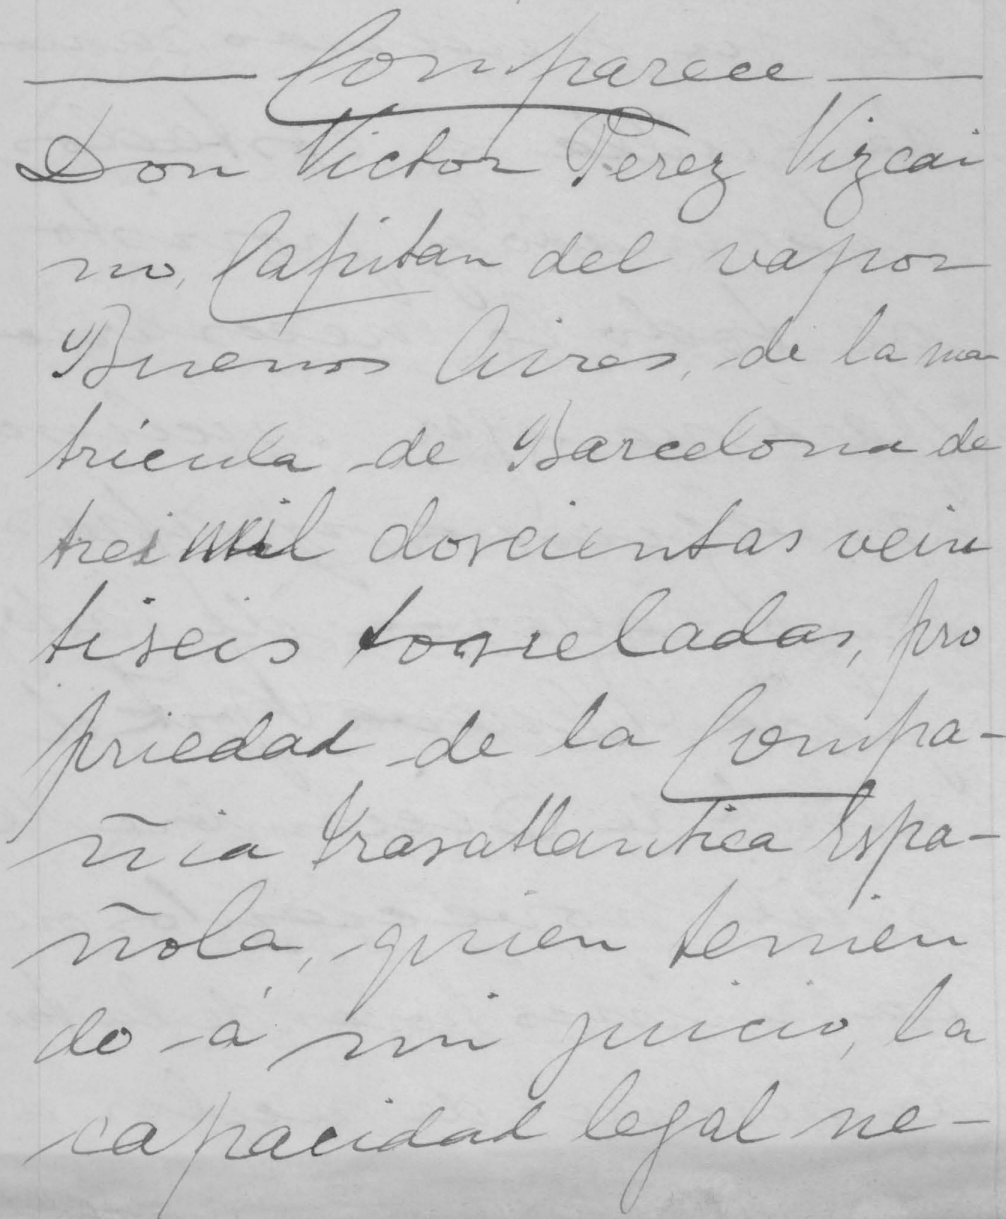 Comparece
Don Victor Perez Vizcai
no, Capitan del vapor
Buenos Aires, de la ma
tricula de Barcelona de
tres mil doscientas vein
tiseis toneladas, pro
priedad de la Compa-
ñia Trasatlantica Espa-
ñola, quien tenien
do á mi juicio, la
capacidad legal ne-